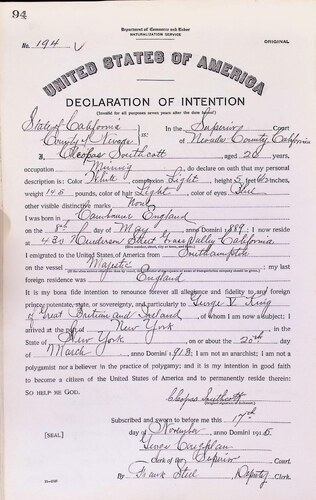 94
Department of Commerce and Labor
NATURALIZATION SERVICE
No. 194
ORIGINAL
UNITED STATES OF AMERICA
DECLARATION OF INTENTION
(Invalid for all purposes seven years after the date hereof)
State of California
County of Nevada
ss:
In the Superior Court
of Nevada County, California
I, Cleopas Southcott, aged 26 years,
occupation Mining, do declare on oath that my personal
description is: Color White, complexion Light, height 5 feet inches,
weight 145 pounds, color of hair Light, color of eyes Blue
other visible distinctive marks None
I was born in Camborne England
on the 8th day of May, anno Domini 1889; I now reside
at 430 Henderson Street Grass Valley California
I emigrated to the United States of America from Southampton
on the vessel Majestic; my last
foreign residence was England
It is my bona fide intention to renounce forever all allegiance and fidelity to any foreign
prince, potentate, state, or sovereignty, and particularly to George V King
of Great Britain and Ireland, of whom I am now a subject; I
arrived at the port of New York, in the
State of New York, on or about the 20th day
of March, anno Domini 1913; I am not an anarchist; I am not a
polygamist nor a believer in the practice of polygamy; and it is my intention in good faith
to become a citizen of the United States of America and to permanently reside therein:
SO HELP ME GOD.
Cleopas Southcott
(Original signature of declarant.)
Subscribed and sworn to before me this 17th
[SEAL]
day of November, anno Domini 1915
George Coughlan
Clerk of the Superior Court.
By Frank Steel Deputy Clerk.